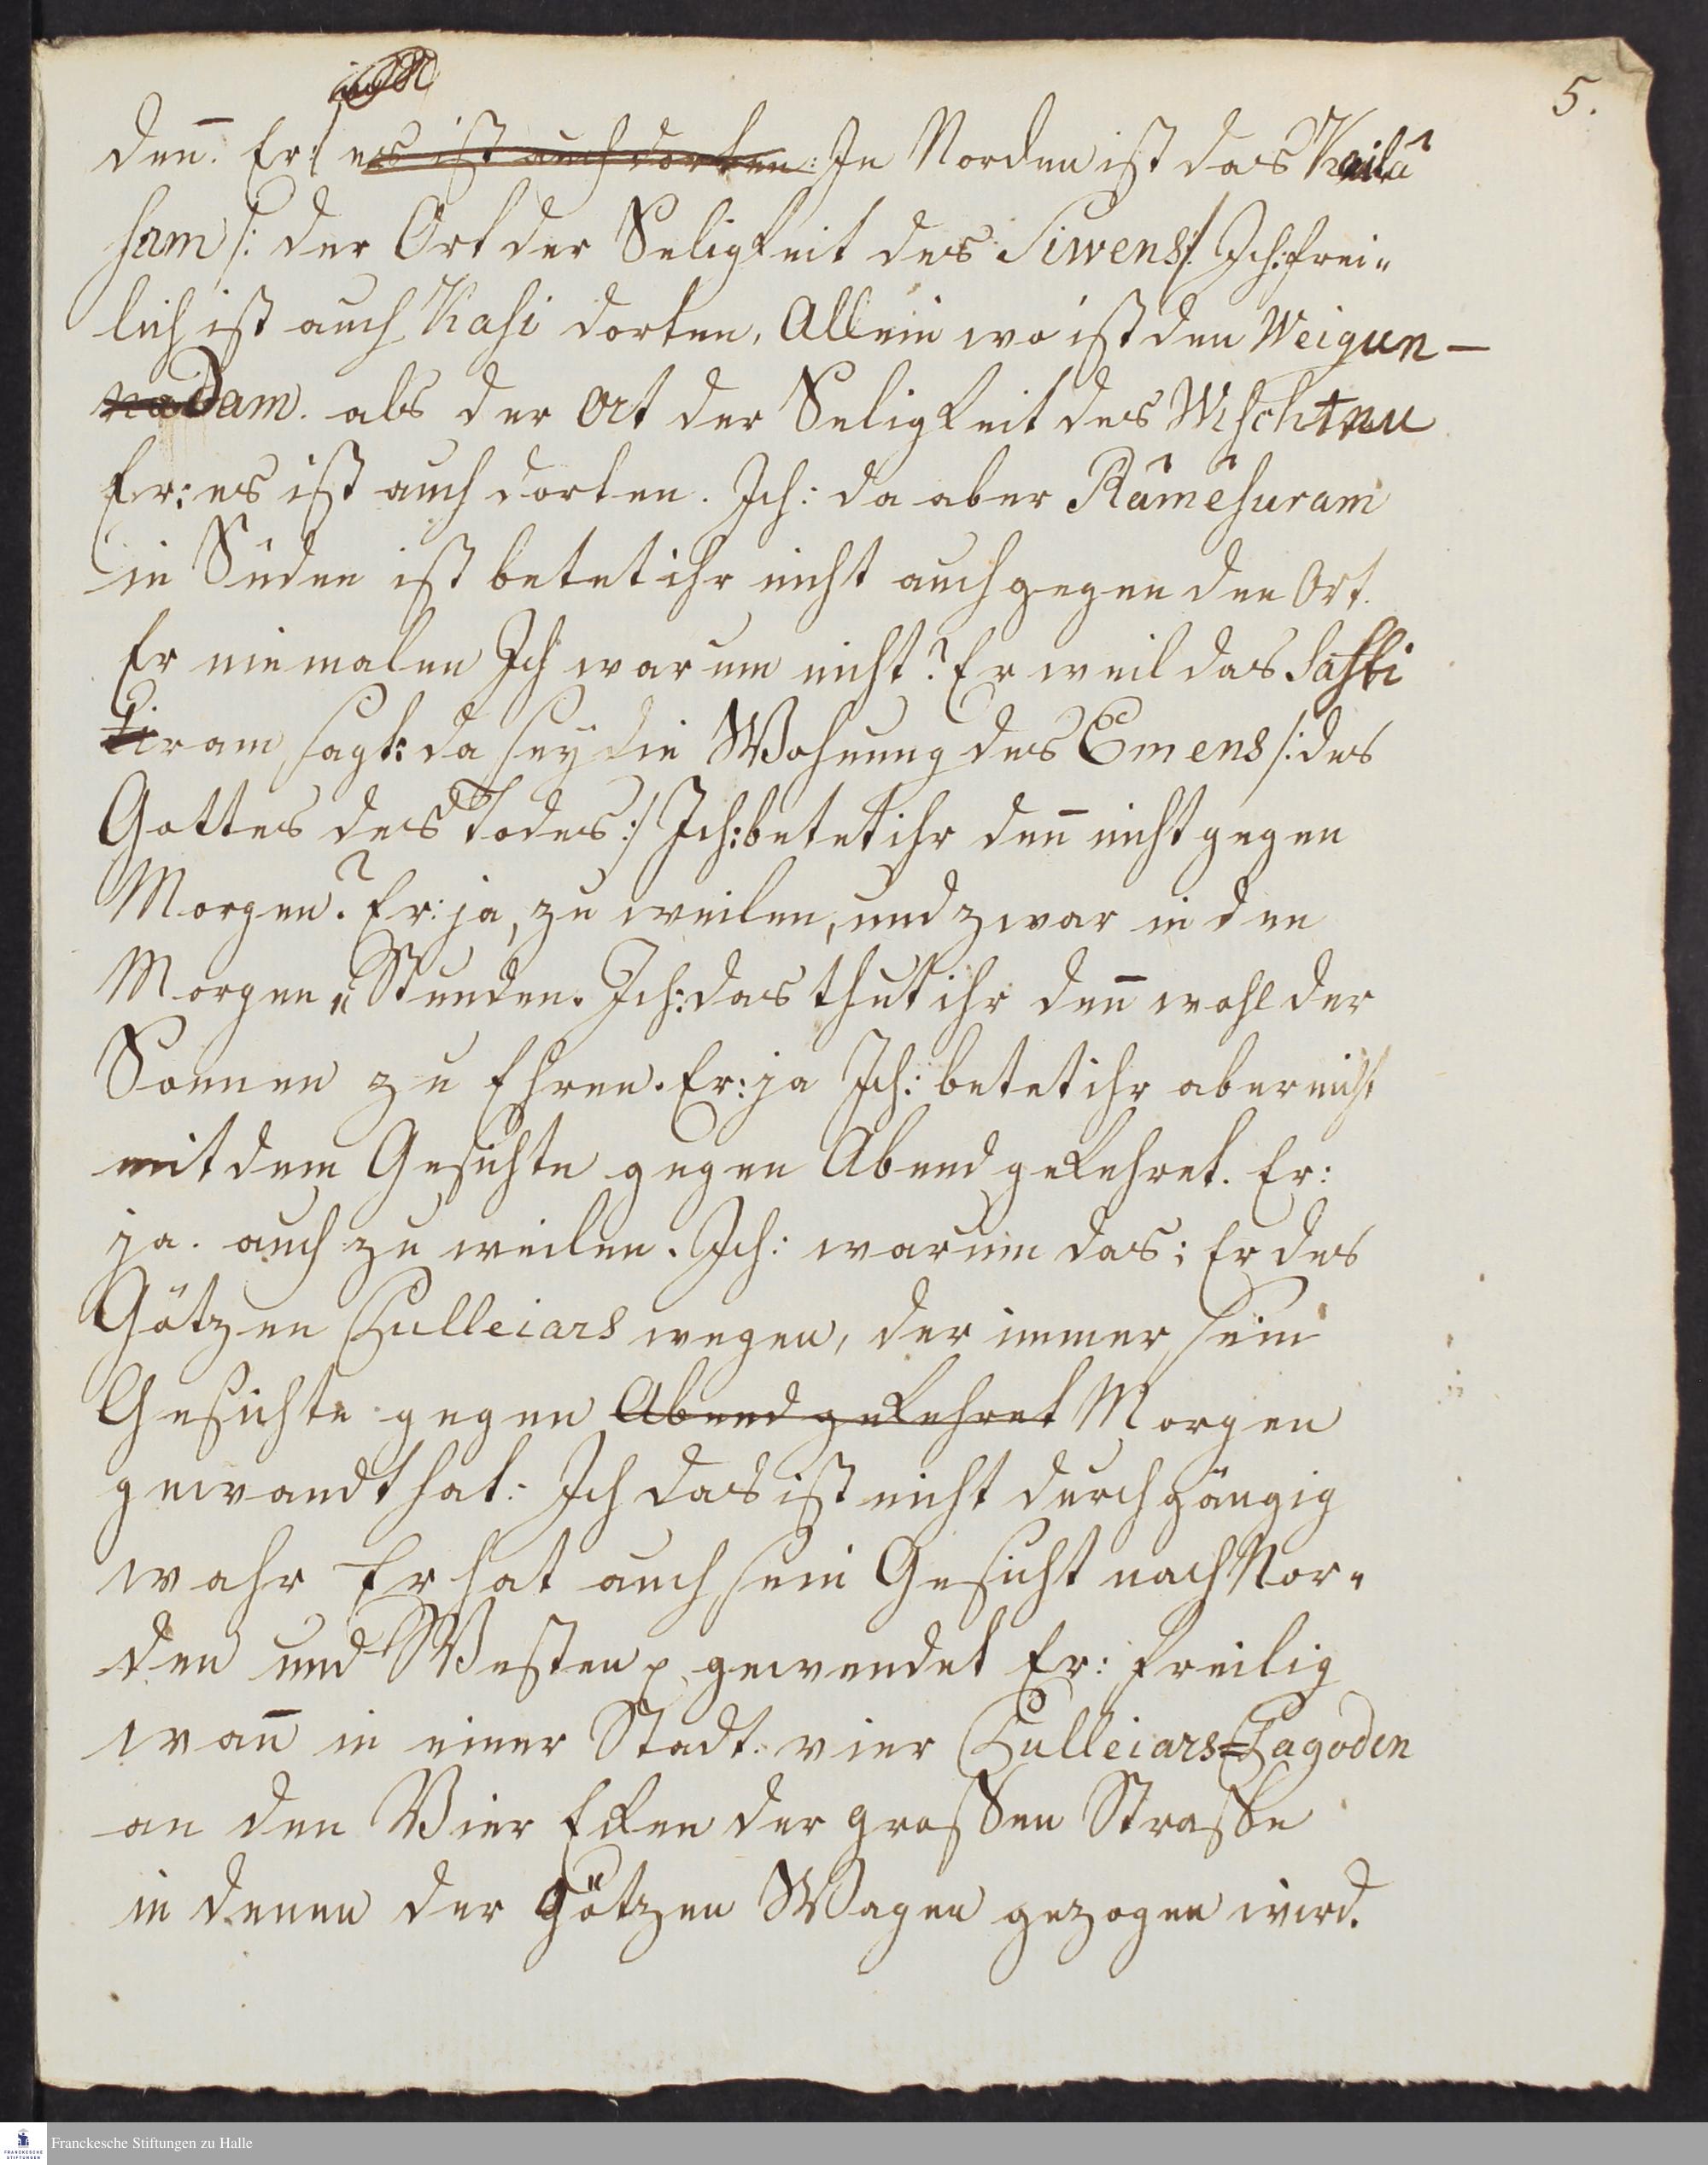 5.
den̄. Er: es ist auch dorten: In Norden ist das Kailâ
sam /: der Ort der Seligkeit des Siwens :/ Ich: frei-
lich ist auch Kasi dorten, Allein wo ist den Weigun-
nadam. als der Ort der Seligkeit des Wischtnu
Er: es ist auch dorten. Ich: da aber Râmêsuram
in Süden ist betet ihr nicht auch gegen den Ort.
Er niemalen Ich warum nicht? Er weil das Sasti
tiram sagt: da sey die Wohnung des Emens /: des
Gottes des Todes :/ Ich: betet ihr den̄ nicht gegen
Morgen? Er: ja, zu weilen, und zwar in den
Morgen-Stunden. Ich: das thut ihr den̄ wohl der
Sonnen zu Ehren. Er: ja Ich: betet ihr aber nicht
mit dem Gesichte gegen Abend gekehret. Er:
ja. auch zu weilen. Ich: warum das: Er des
Götzen Pulleiars wegen, der immer sein
Gesichte gegen Abend gekehret Morgen
gewandt hat: Ich das ist nicht durchgängig
wahr Er hat auch sein Gesicht nach Nor-
den und Westen gewendet Er: freilig
wan̄ in einer Stadt. vier Pulleiars=Pagoden
an den Vier Ecken der grossen Strasse
in denen der Götzen Wagen gezogen wird.
Franckesche Stiftungen zu Halle